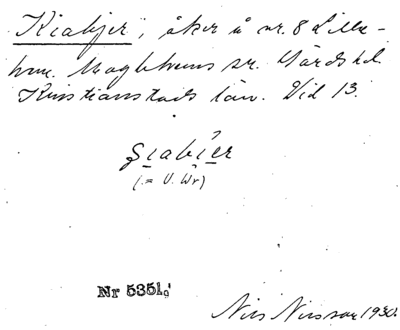 "Kiabjer", åker å nr. 8 Lille-
hem. Maglehems sn. Gärds hd.
Kristianstads län. Vid 13.
giabier
(:= V. Wr)
Nr 5351.
Nils Nilsson 1930.